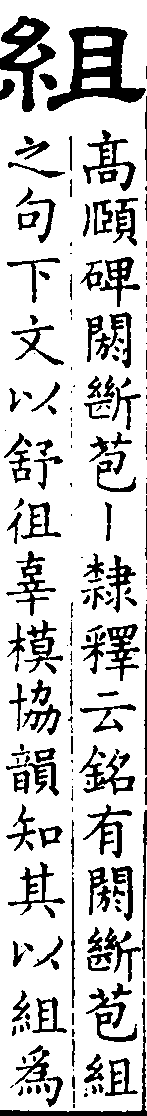 組
高頤碑閼斷苞丨隸釋云銘有閼斷苞組
之句下文以舒徂辜模協韻知其以組爲